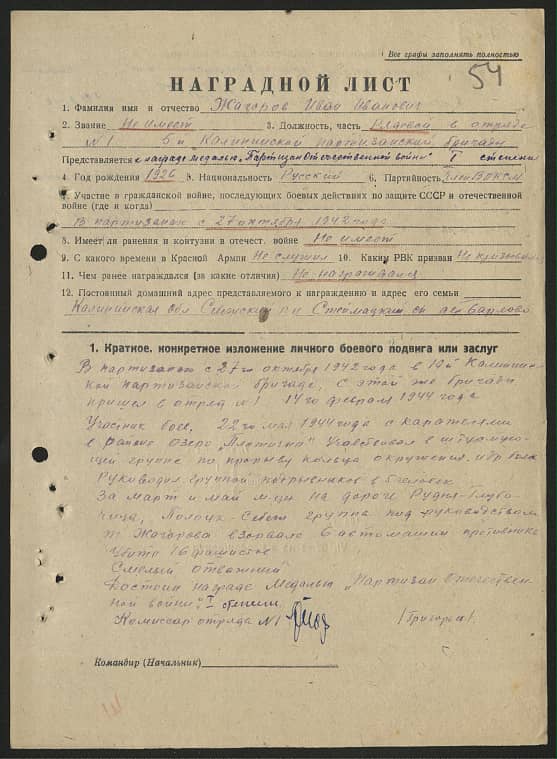 Все графы заполнять полностью
54
НАГРАДНОЙ ЛИСТ
1. Фамилия имя и отчество Жагоров Иван Иванович
2. Звание Не имеет 3. Должность, часть Рядовой в отряде
N1 5й Калининской партизанской бригады
Представляется к награде медалью "Партизан Отечественной войны" I степени
4. Год рождения 1926 5. Национальность Русский 6. Партийность Член ВЛКСМ
7. Участие в гражданской войне, последующих боевых действиях по защите СССР и отечественной
войне (где и когда)
В партизанах с 27 октября 1942 года
8. Имеет ли ранения и контузии в отечест. войне Не имеет
9. С какого времени в Красной Армии Не служил 10. Каким РВК призван Не призывался
11. Чем ранее награждался (за какие отличия) Не награждался
12. Постоянный домашний адрес представляемого к награждению и адрес его семьи
Калининская обл р-н
1. Краткое, конкретное изложение личного боевого подвига или заслуг
В партизанах с 27го октября 1942 года в Калинин-
ской партизанской бригаде, с этой же бригады
пришел в отряд N1 14го февраля 1944 года
Участник боев, 22го мая 1944 года с карателями
в районе озеро участвовал в штурмую-
щей группе по прорыву кольца окружения
Руководил группой подрывников в 5 человек
За март и май м-цы на дороге Рудня-Глубо-
чица, Полоцк- группа под руководством
т. Жагорова взорвало 6 автомашин противника
убито 16 фашистов
Смелый отважный
Достоин награде Медалью "Партизан Отечествен-
ной войны" I степени
Комиссар отряда N1 /Григорьев/
Командир (Начальник)